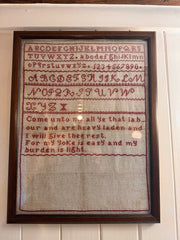 ABCDEFGHIJKLMNOPQRST
UVWXYZ. abcdefghijklmn
opqrstuvwxyz. 1234567890
ABCDEFGHIJKLM
NOPQRSTUVW
XYZ
Come unto me all ye that lab
our and are heavy laden and
I will give thee rest.
For my yoke is easy and my
burden is light.